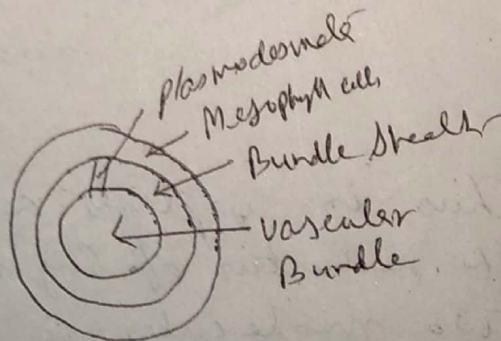 Plasmodesmata
Mesophyll cells
Bundle Sheath
vascular
Bundle